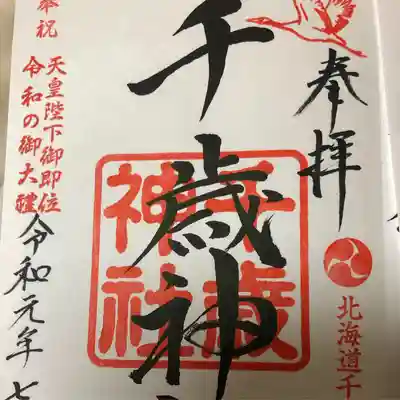 奉拝
北海道千
千歳神
千歳
神社
奉祝
天皇陛下御即位
令和の御大禮
令和元年七